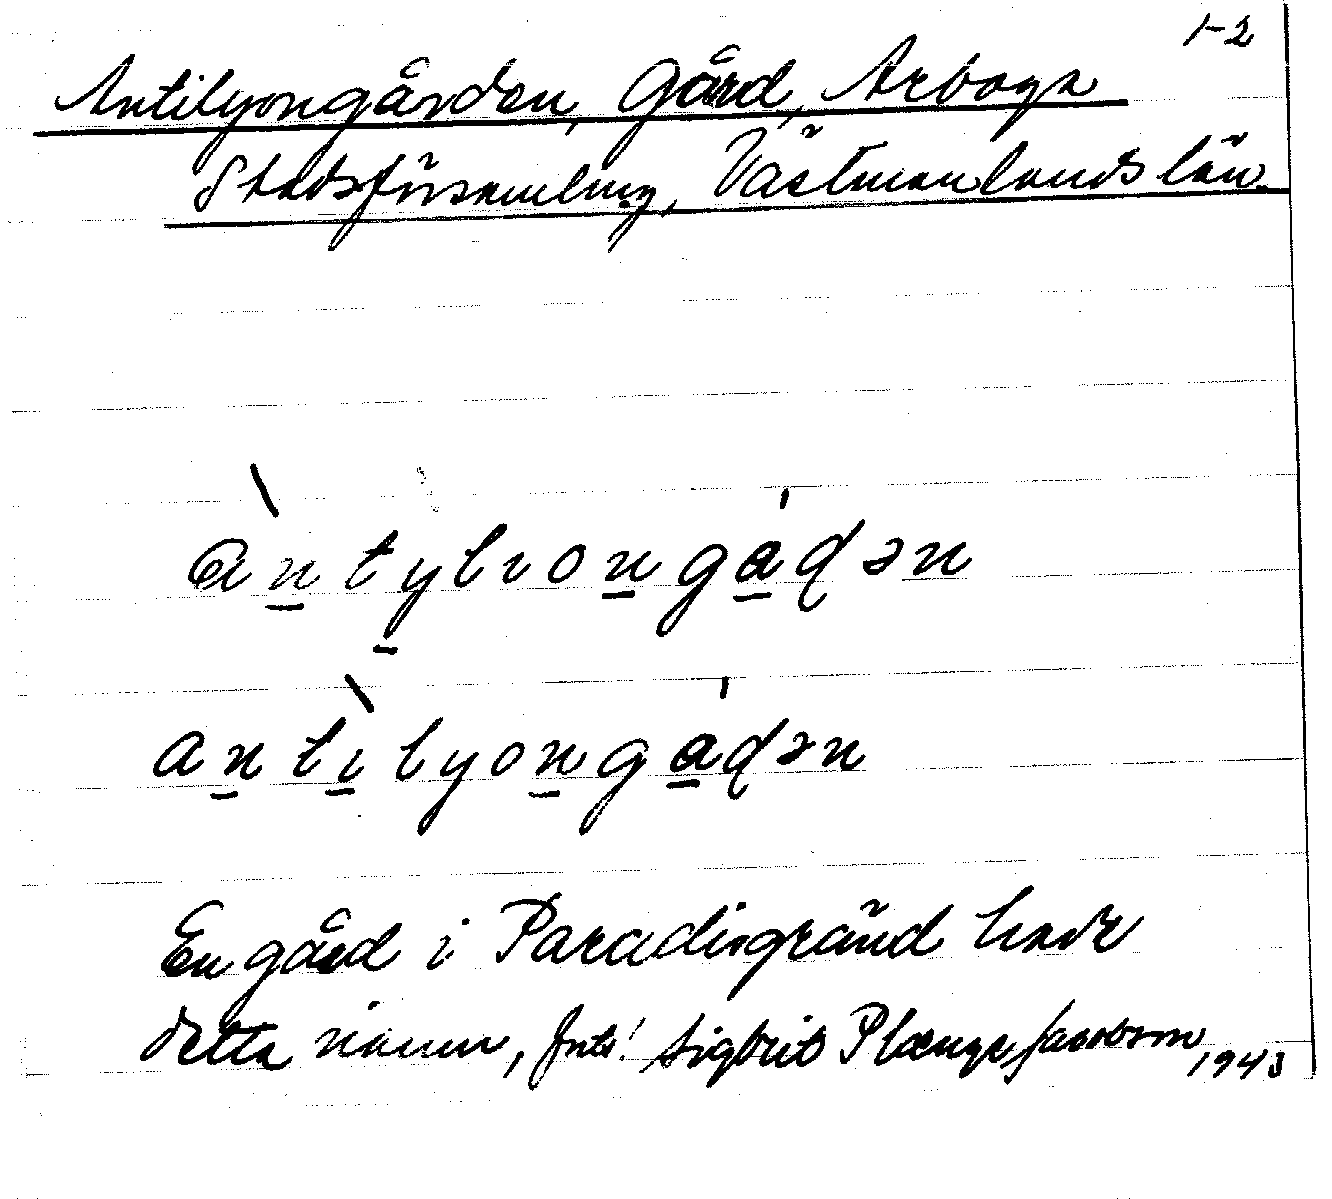 1-2
Antilyongården, Gård, Arboga
Stadsförsamling, Västmanlands län.
àntylıongádən
antìlyongádən
En gård i Paradisgränd hade
detta namn, Ints! Sigbrit Plænge Jacobson
1943